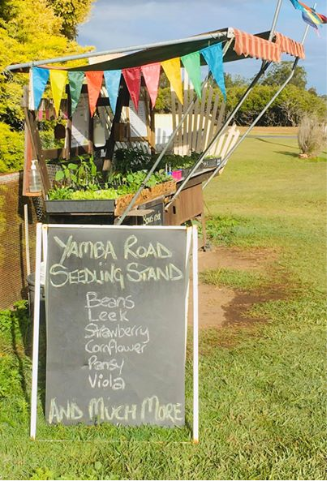 YAMBA ROAD
SEEDLING STAND
Beans
Leek
Strawberry
Cornflower
Pansy
Viola
AND MUCH MORE